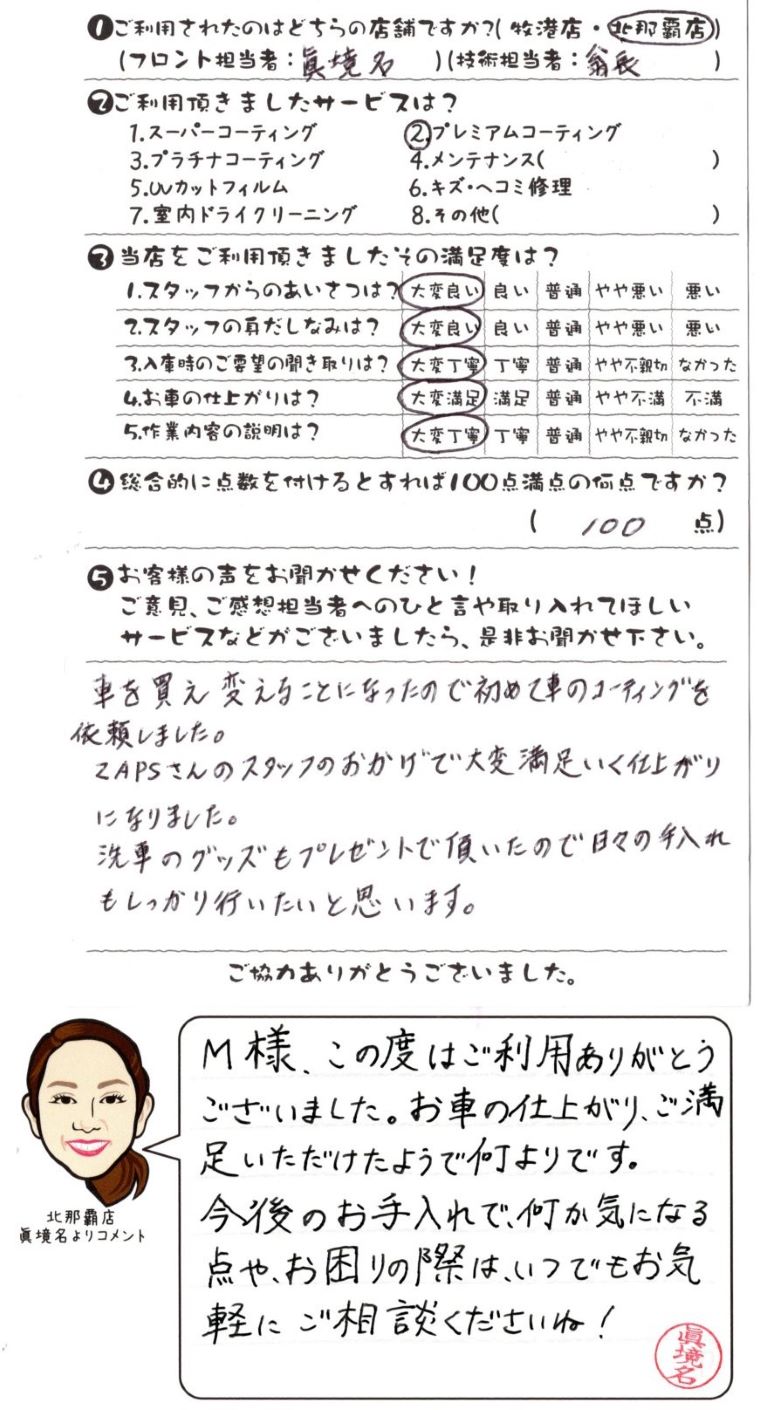 ❶ご利用されたのはどちらの店舗ですか?(牧港店・北那覇店)
(フロント担当者:眞境名)(技術担当者:翁長)
❷ご利用頂きましたサービスは?
1.スーパーコーティング 2.プレミアムコーティング
3.プラチナコーティング 4.メンテナンス( )
5.UVカットフィルム 6.キズ・ヘコミ修理
7.室内ドライクリーニング 8.その他( )
❸当店をご利用頂きましたその満足度は?
1.スタッフからのあいさつは? 大変良い 良い 普通 やや悪い 悪い
2.スタッフの身だしなみは? 大変良い 良い 普通 やや悪い 悪い
3.入庫時のご要望の聞き取りは? 大変丁寧 丁寧 普通 やや不親切 なかった
4.お車の仕上がりは? 大変満足 満足 普通 やや不満 不満
5.作業内容の説明は? 大変丁寧 丁寧 普通 やや不親切 なかった
❹総合的に点数を付けるとすれば100点満点の何点ですか?
( 100 点)
❺お客様の声をお聞かせください!
ご意見、ご感想担当者へのひと言や取り入れてほしい
サービスなどがございましたら、是非お聞かせ下さい。
車を買え変えることになったので初めて車のコーティングを
依頼しました。
ZAPSさんのスタッフのおかげで大変満足いく仕上がり
になりました。
洗車のグッズもプレゼントで頂いたので日々の手入れ
もしっかり行いたいと思います。
ご協力ありがとうございました。
M様、この度はご利用ありがとう
ございました。お車の仕上がり、ご満
足いただけたようで何よりです。
今後のお手入れで、何か気になる
点や、お困りの際は、いつでもお気
軽にご相談くださいね!
眞境名
北那覇店
眞境名よりコメント